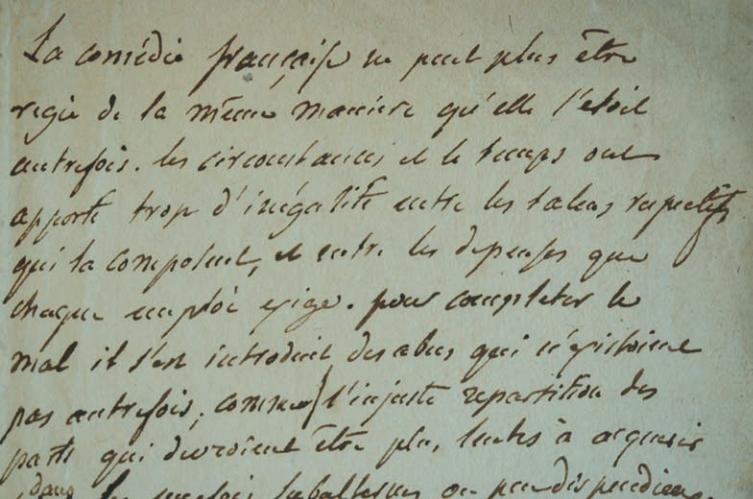 La comédie françaife ne peut plus être
regie de la même maniere qu'elle l'étoit
autrefois. les circonstances et le temps ont
apporté trop d'inégalité entre les talens respectifs
qui la composent, et entre les depenses que
chaque emploi exige. pour completer le
mal il s'est introduit des abus qui n'existoient
pas autrefois, comme l'injuste repartition des
parts qui devroient être plus lentes à acquerir
dans les emplois subalternes ou peu dispendieux